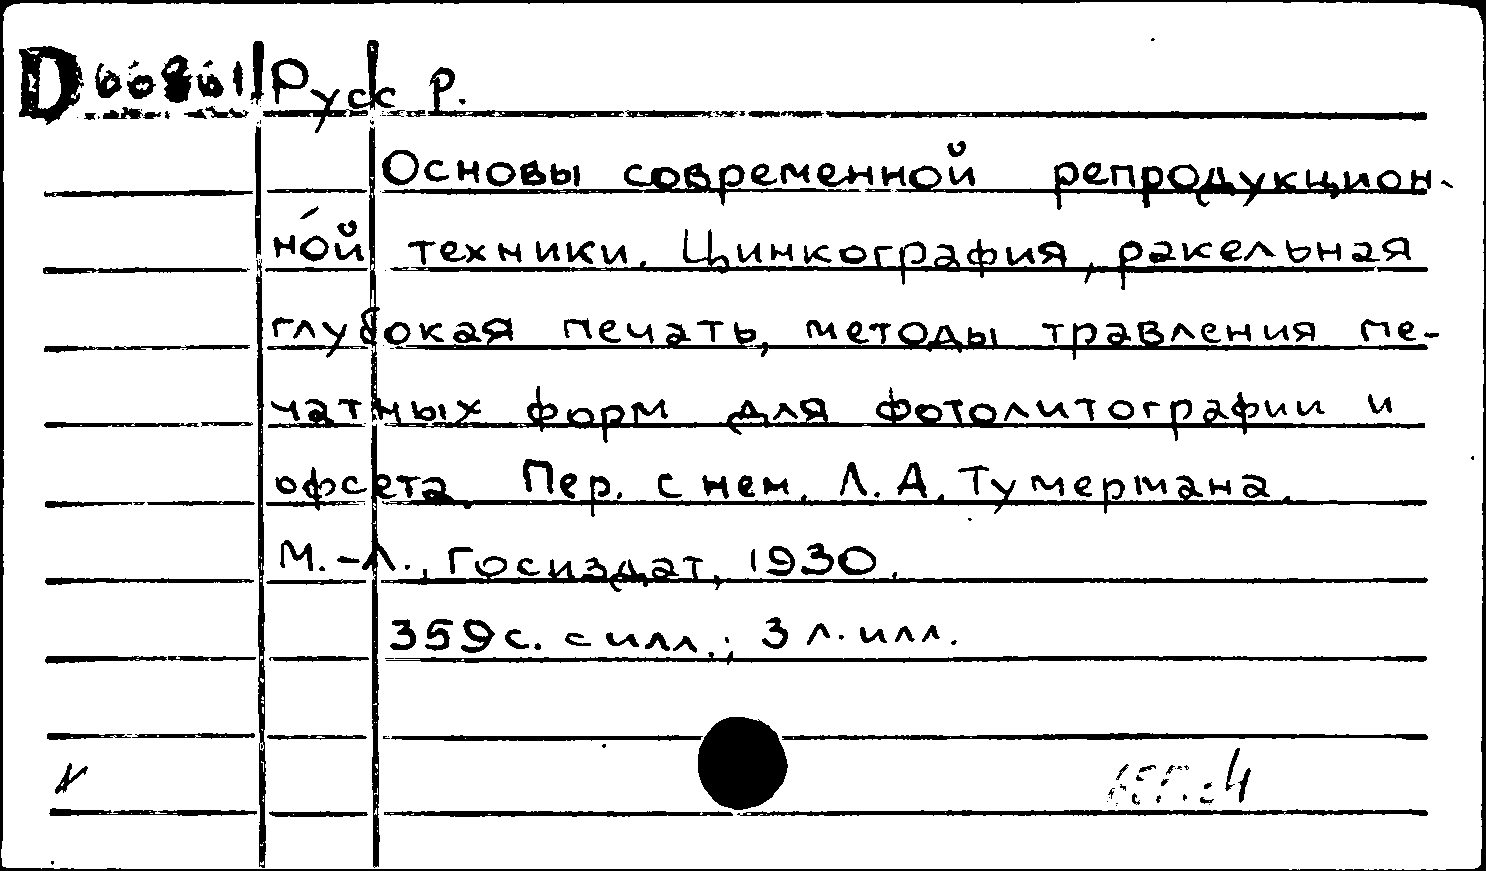 Русс Р.
Основы современной репродукцион-
ной техники. Цинкография, ракельная
глубокая печать, методы травления пе-
чатных форм для фотолитографии и
офсета. Пер. с нем. Л. А. Тумермана.
М.-Л., Госиздат, 1930.
359 с. с илл.; 3 л. илл.